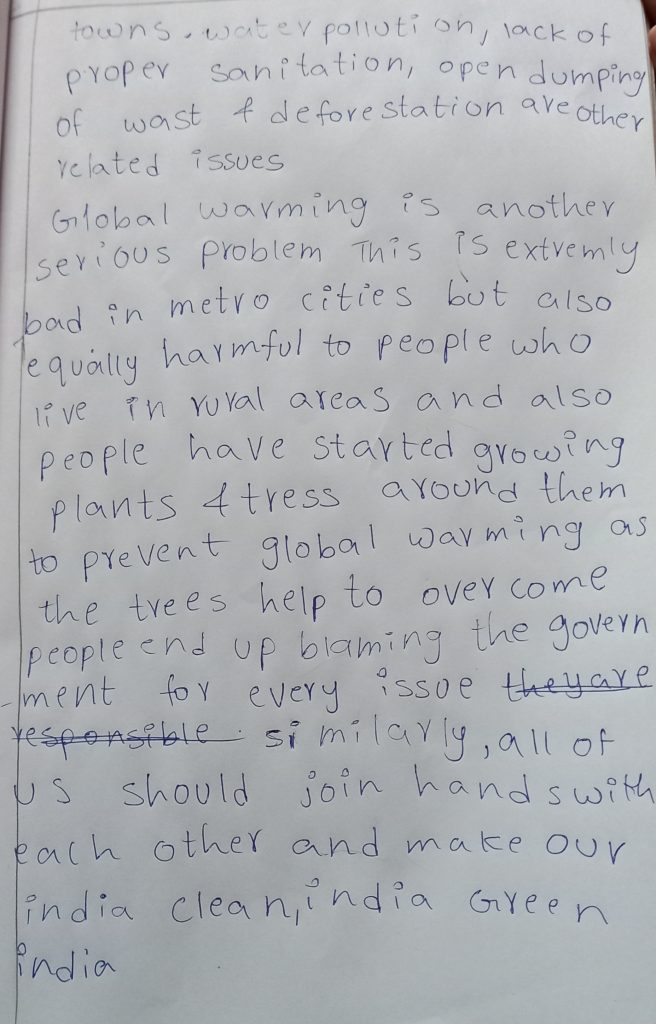 towns. water pollution, lack of
proper sanitation, open dumping
of wast & deforestation are other
related issues
Global warming is another
serious problem This is extremly
bad in metro cities but also
equally harmful to people who
live in rural areas and also
people have started growing
plants & tress around them
to prevent global warming as
the trees help to over come
people end up blaming the govern
-ment for every issoe they are
responsible. similarly, all of
us should join hands with
each other and make our
india clean, india Green
india